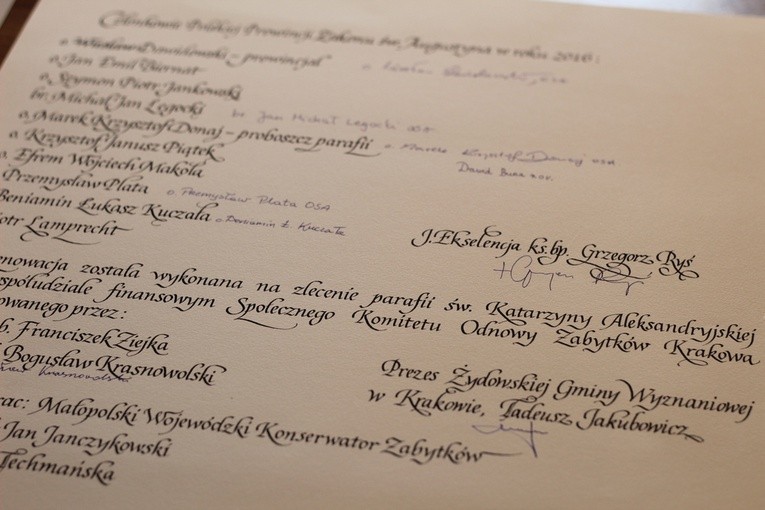 Członkowie Polskiej Prowincji Zakonu św. Augustyna w roku 2016:
o. Wiesław Dawidowski – prowincjał
o. Jan Emil Biernat
o. Szymon Piotr Jankowski
br. Michał Jan Legocki br Jan Michał Legocki OSA
o. Marek Krzysztof Donaj – proboszcz parafii o. Marek Krzysztof Donaj OSA
o. Krzysztof Janusz Piątek
o. Efrem Wojciech Makola
Przemysław Plata o. Przemysław Plata OSA
Beniamin Łukasz Kuczała o. Beniamin Ł. Kuczała
Lamprecht
J. Ekselencja ks. bp. Grzegorz Ryś
została wykonana na zlecenie parafii św. Katarzyny Aleksandryjskiej
finansowym Społecznego Komitetu Odnowy Zabytków Krakowa
przez:
Franciszek Ziejka
Bogusław Krasnowolski
Krasnowolski
Prezes Żydowskiej Gminy Wyznaniowej
w Krakowie, Tadeusz Jakubowicz
Małopolski Wojewódzki Konserwator Zabytków
Jan Janczykowski
Techmańska